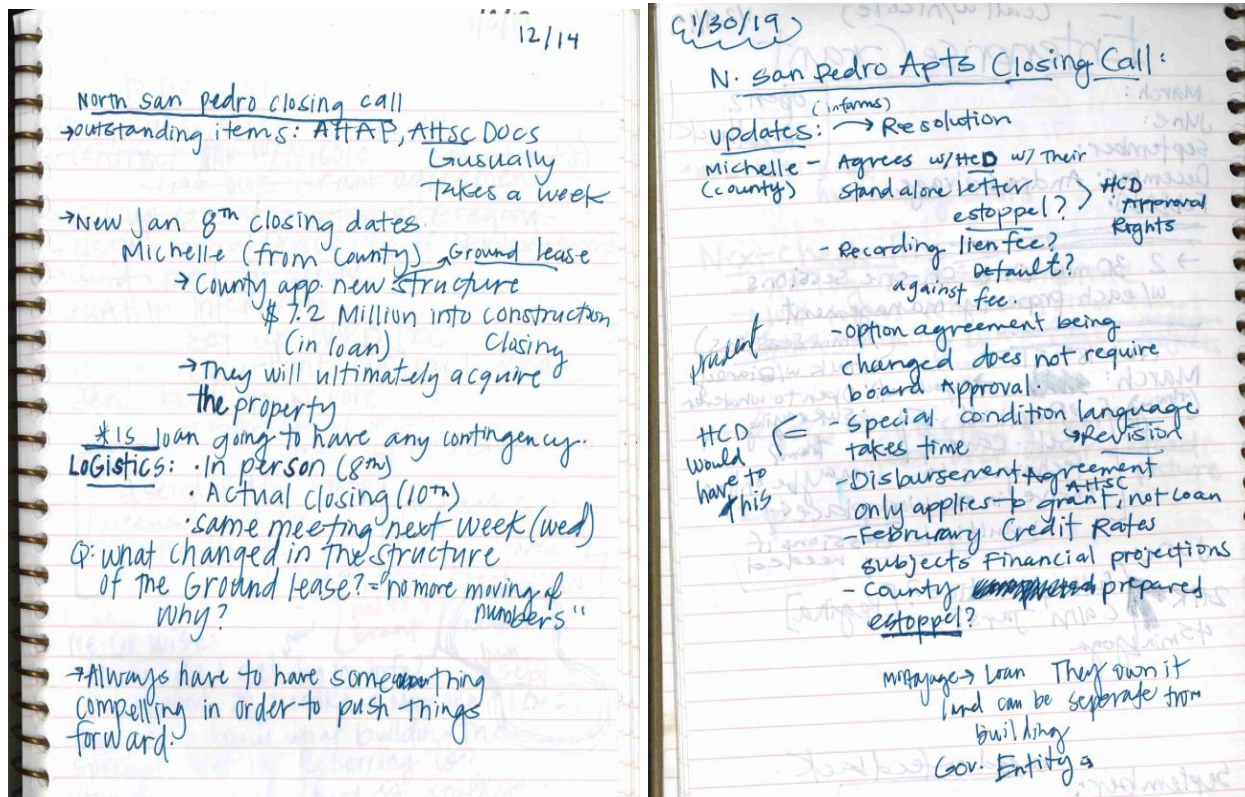 12/14
North san pedro closing call
→outstanding items: AHAP, AHSC DOCS
usually
takes a week
→New Jan 8th closing dates.
Michelle (from county) → Ground lease
→ County app. new structure
$7.2 Million into construction
(in loan) Closing
→They will ultimately acquire
the property
*Is loan going to have any contingency.
LOGistics: • In person (8th)
• Actual closing (10th)
• same meeting next week (wed)
Q: what changed in the structure
of the Ground lease? = "no more moving of
Why? numbers"
→Always have to have something
compelling in order to push things
forward.
1/30/19
N. San Pedro Apts Closing Call:
(informs)
updates: → Resolution
Michelle - Agrees w/HCD w/ Their
(county) stand alone letter
estoppel? > HCD
Approval
Rights
- Recording lien fee?
Default?
against fee.
- option agreement being
changed does not require
board Approval.
- special condition language
takes time → Revision
HCD
would
have to
this
- Disbursement Agreement
AHSC
only applies to grant, not loan
- Februrary Credit Rates
subjects Financial projections
- County prepared
estoppel?
mortgage → Loan They own it
land can be seperate from
building
Gov. Entity →